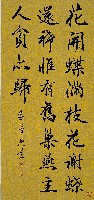 花開蝶滿枝花謝蝶
還稀惟有舊巢燕主
人貧亦歸